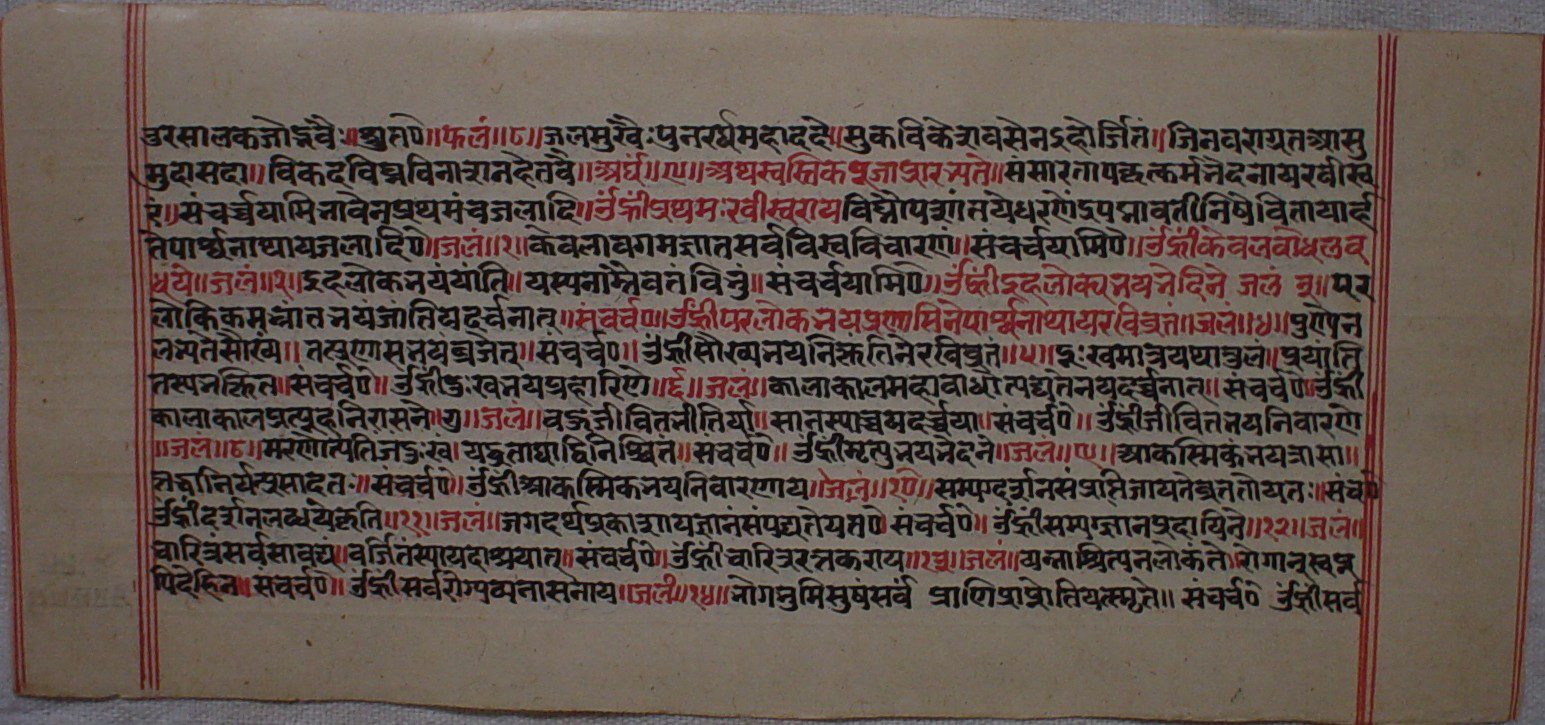 डरसालकजोद्भवैः॥श्रुत०॥फलं॥८॥जलमुखैःपुनरर्घमहाददे॥सुकविकेशवसेनइहोर्जितं॥जिनवराग्रतआसु
मुदासदा॥विकदविघ्नविनाशनहेतवे॥अर्घं॥९॥अथस्वस्तिकेपूजाप्रारभ्यते॥संसारतापहृत्कर्मभेदनायरवीस्व
रं॥संचर्च्चयामिभावेनप्रथमंचजलादि॥ॐह्रींप्रथमःरवीस्वरायविघ्नौपशांतयेधरणेंद्रपद्मावतीनिषेवितायार्ह
तेपार्श्वनाथायजलादि०॥जलं॥१॥केवलावगमज्ञातसर्वविस्वविचारणं॥संचर्चयामि०॥ॐह्रींकेवलबोधलब्
धये॥जलं॥२॥इहलोकभयंयाति॥यस्यनाम्नैवतंविभुं॥संचर्चयामि०॥ॐह्रींइहलोक्यभयभेदिने जलं ३॥पर
लोकिकमथांतभयंजातियदर्चनात्॥संचर्च०॥ॐह्रींपरलोकभयप्रणासिनेपार्श्वनाथायरविव्रतं॥जलं॥४॥पुण्येन
लभ्यतेसौख्यं॥तत्प्रणासभयंव्रजेत्॥संचर्च०॥ॐह्रींसौख्यभयनिकृतिनेरविव्रतं॥५॥दुःखमात्रयथातुलं॥प्रयाति
तस्यभक्तित॥संचर्च०॥ॐह्रींदुःखभयप्रहारिणे॥६॥जलं॥कालाकालमहाबाधोत्पद्यतेभयदर्च्चनात्॥संचर्च०॥ॐह्रीं
कालाकालप्रत्यूहनिरासने॥७॥जलं॥वज्रजीवितभीतिर्या॥सानस्याच्चयदर्च्चया॥संचर्च०॥ॐह्रींजीवितभयनिवारणे
॥जलं॥८॥मरणोत्पतिजदुःखं।यद्भुताद्याद्विनिश्चितं॥संचर्च०॥ॐह्रींमृत्युभयभेदने॥जलं॥९॥आकस्मिकंभयत्रासा॥
भद्वानिर्यत्प्रसादतः॥संचर्च०॥ॐह्रींआकस्मिकभयनिवारणाय॥जलं॥१०॥सम्यग्दर्शनसंप्राप्तिजायतेद्भुततोयतः॥संच०
ॐह्रींदर्शनलब्धयेकृति॥११॥जलं॥जगदर्थप्रकाशायज्ञानंसंपद्यतेयत० संचर्च०॥ॐह्रींसम्यग्ज्ञानप्रदायिने॥१२॥जलं॥
चारित्रंसर्वसावद्यं॥वर्जितंस्यायदाश्रयात्॥संचर्च०॥ॐह्रींचारित्ररत्नकराय॥१३॥जलं॥यन्नाश्रित्यनलोकंते॥रोगानुस्वप्न
पिदेहिन॥संचर्च०॥ॐह्रींसर्वरोगप्रव्यनासनाय॥जली॥१४॥भोगभुमिसुषंसर्वं प्राणिप्राप्नोतियत्स्मृते॥संचर्च० ॐह्रींसर्व